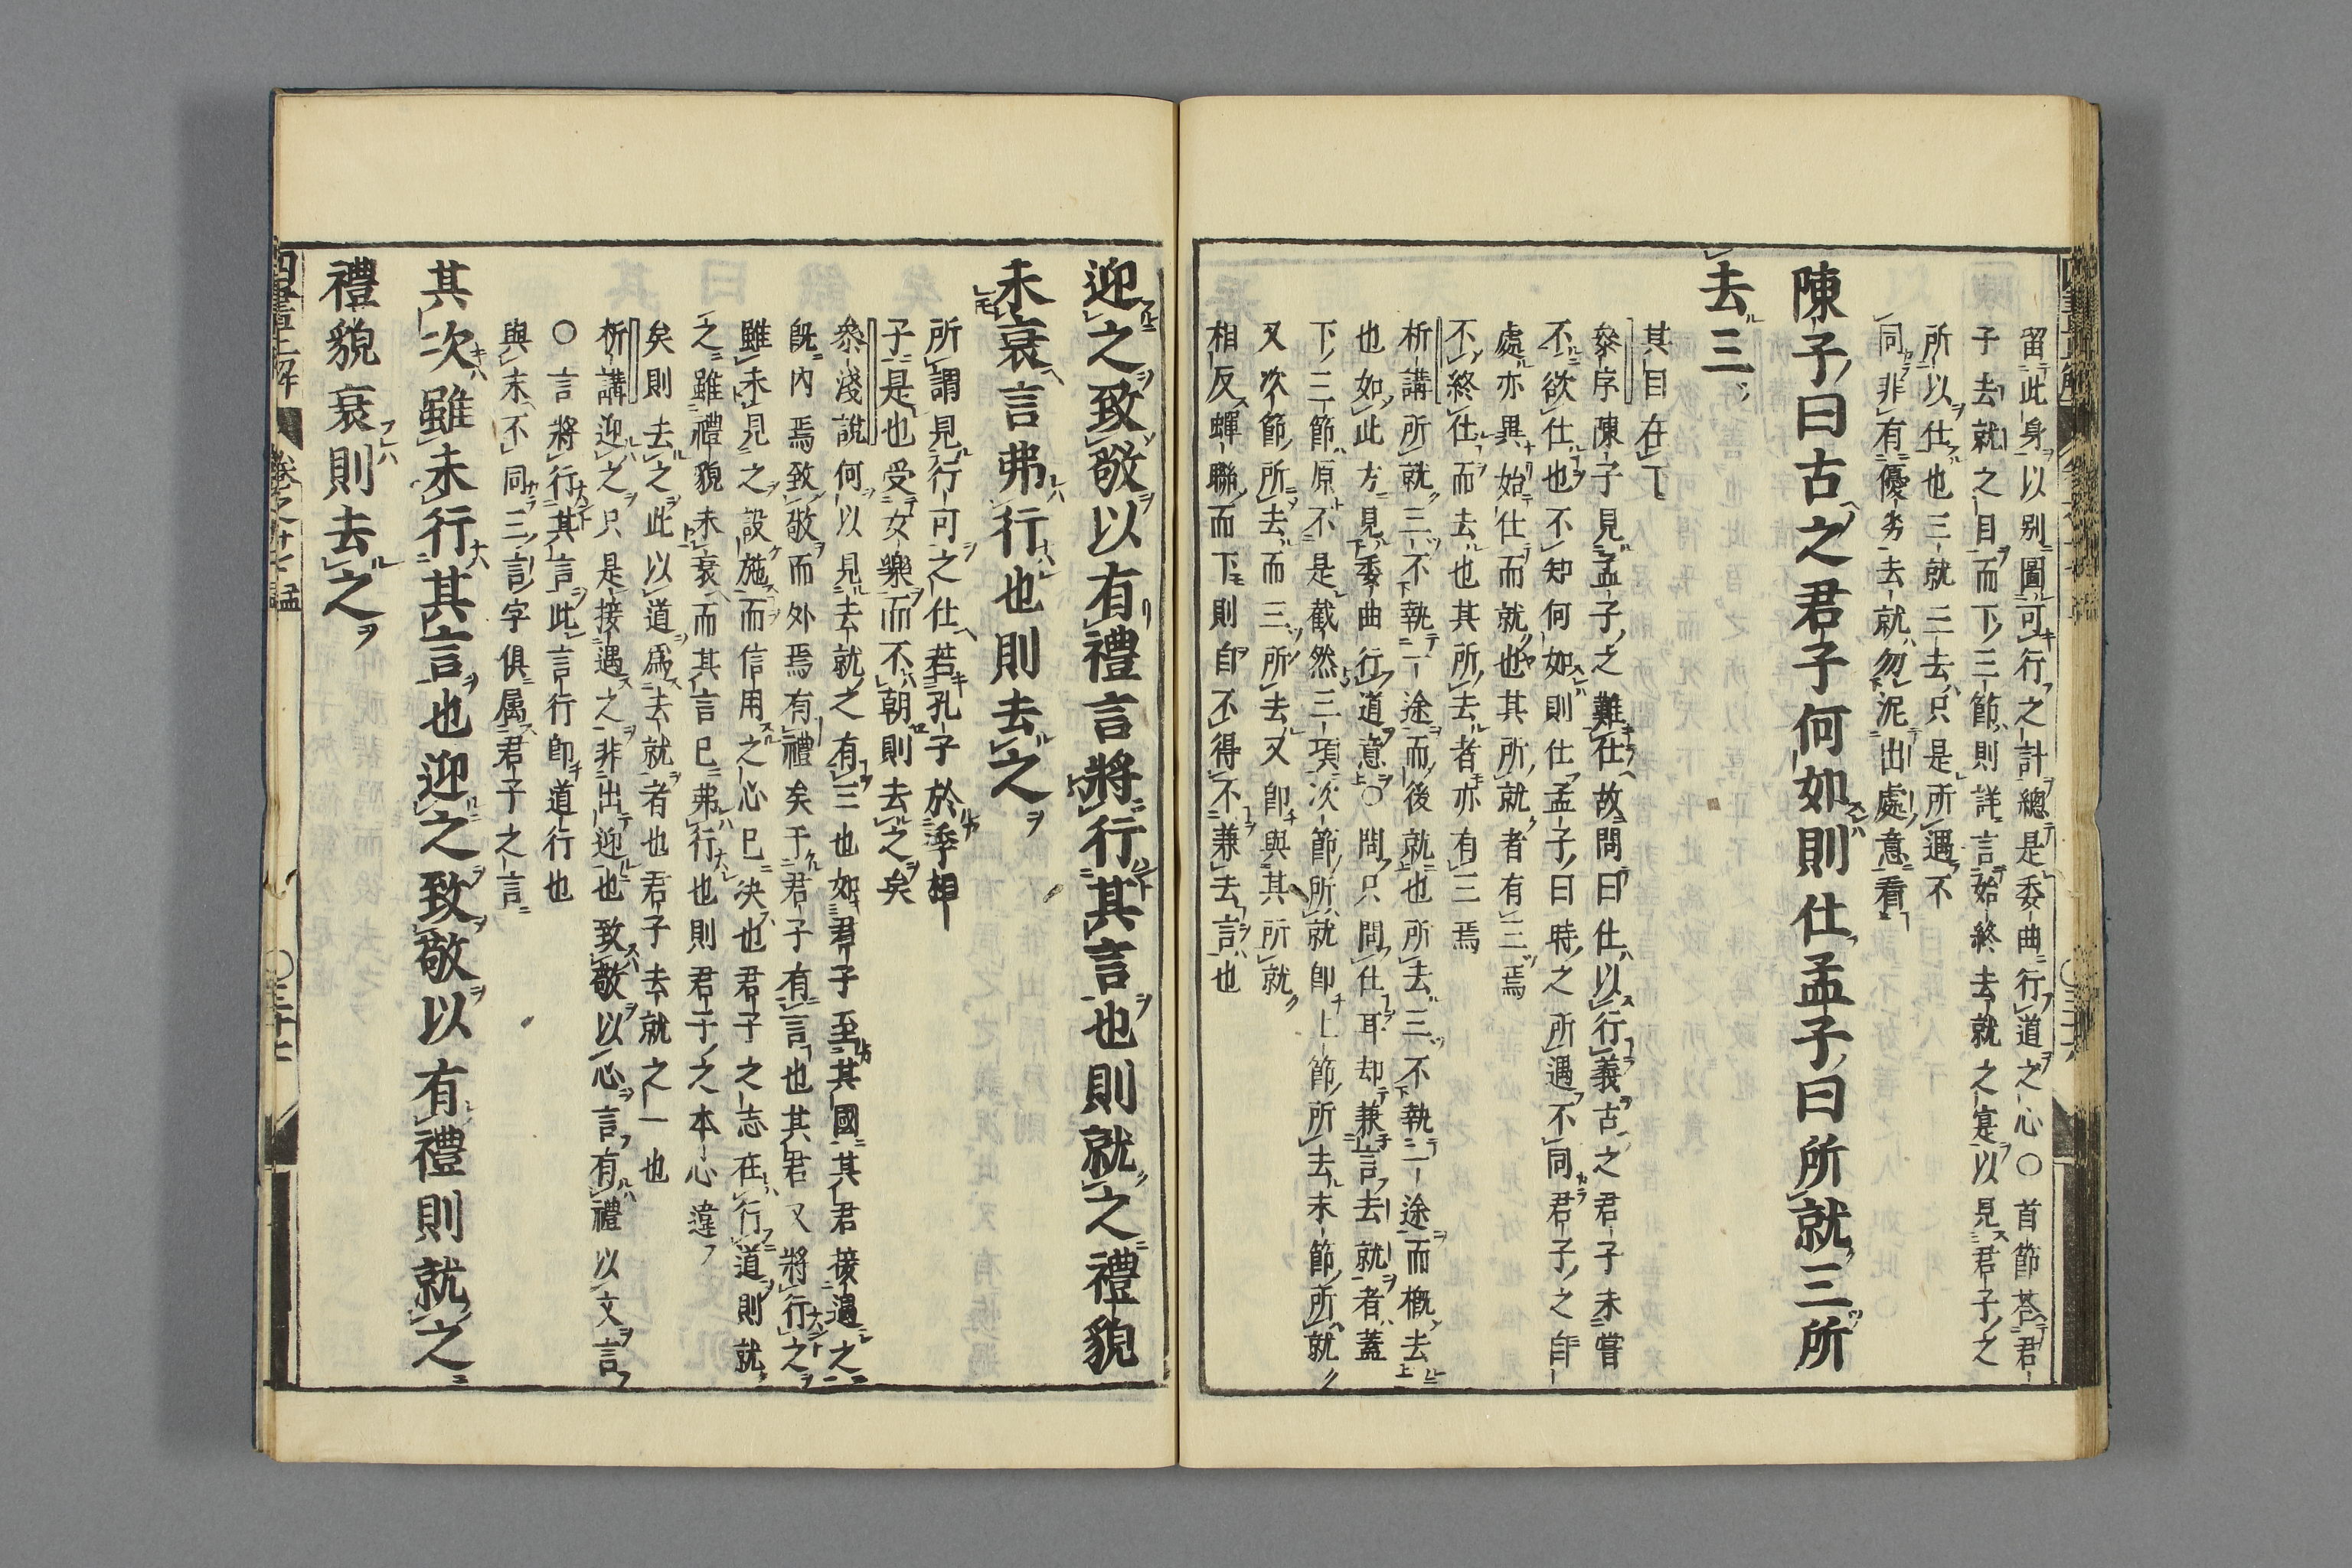 留此身以別圖可行之計總是委曲行道之心〇首節荅君
子去就之目而下三節則詳言始終去就之寔以見君子之
所以仕也三就三去只是所遇不
同非有優劣去就勿泥出處意看
陳子曰古之君子何如則仕孟子曰所就三所
去三
其目在下
參序陳子見孟子之難仕故問曰仕以行義古之君子未嘗
不欲仕也不知何如則仕孟子曰時之所遇不同君子之自
處亦異始仕而就也其所就者有三焉
不終仕而去也其所去者亦有三焉
析講所就三不執一途而後就也所去三不執一途而概去
也如此方見委曲行道意〇問只問仕耳却兼言去就者蓋
下三節原不是截然三項次節所就卽上節所去末節所就
又次節所去而三所去又卽與其所就
相反蟬聯而下則自不得不兼去言也
迎之致敬以有禮言將行其言也則就之禮貌
未衰言弗行也則去之
所謂見行可之仕若孔子於季桓
子是也受女樂而不朝則去之矣
參淺說何以見去就之有三也如君子至其國其君接遇之
旣內焉致敬而外焉有禮矣于君子有言也其君又將行之
雖未見之設施而信用之心已決也君子之志在行道則就
之雖禮貌未衰而其言已弗行也則君子之本心違
矣則去之此以道爲去就者也君子去就之一也
析講迎之只是接遇之非出迎也致敬以心言有禮以文言
〇言將行其言此言行卽道行也
與末不同三言字俱属君子之言
其次雖未行其言也迎之致敬以有禮則就之
禮貌衰則去之
四書正解 卷之廿七 孟 〇三十七